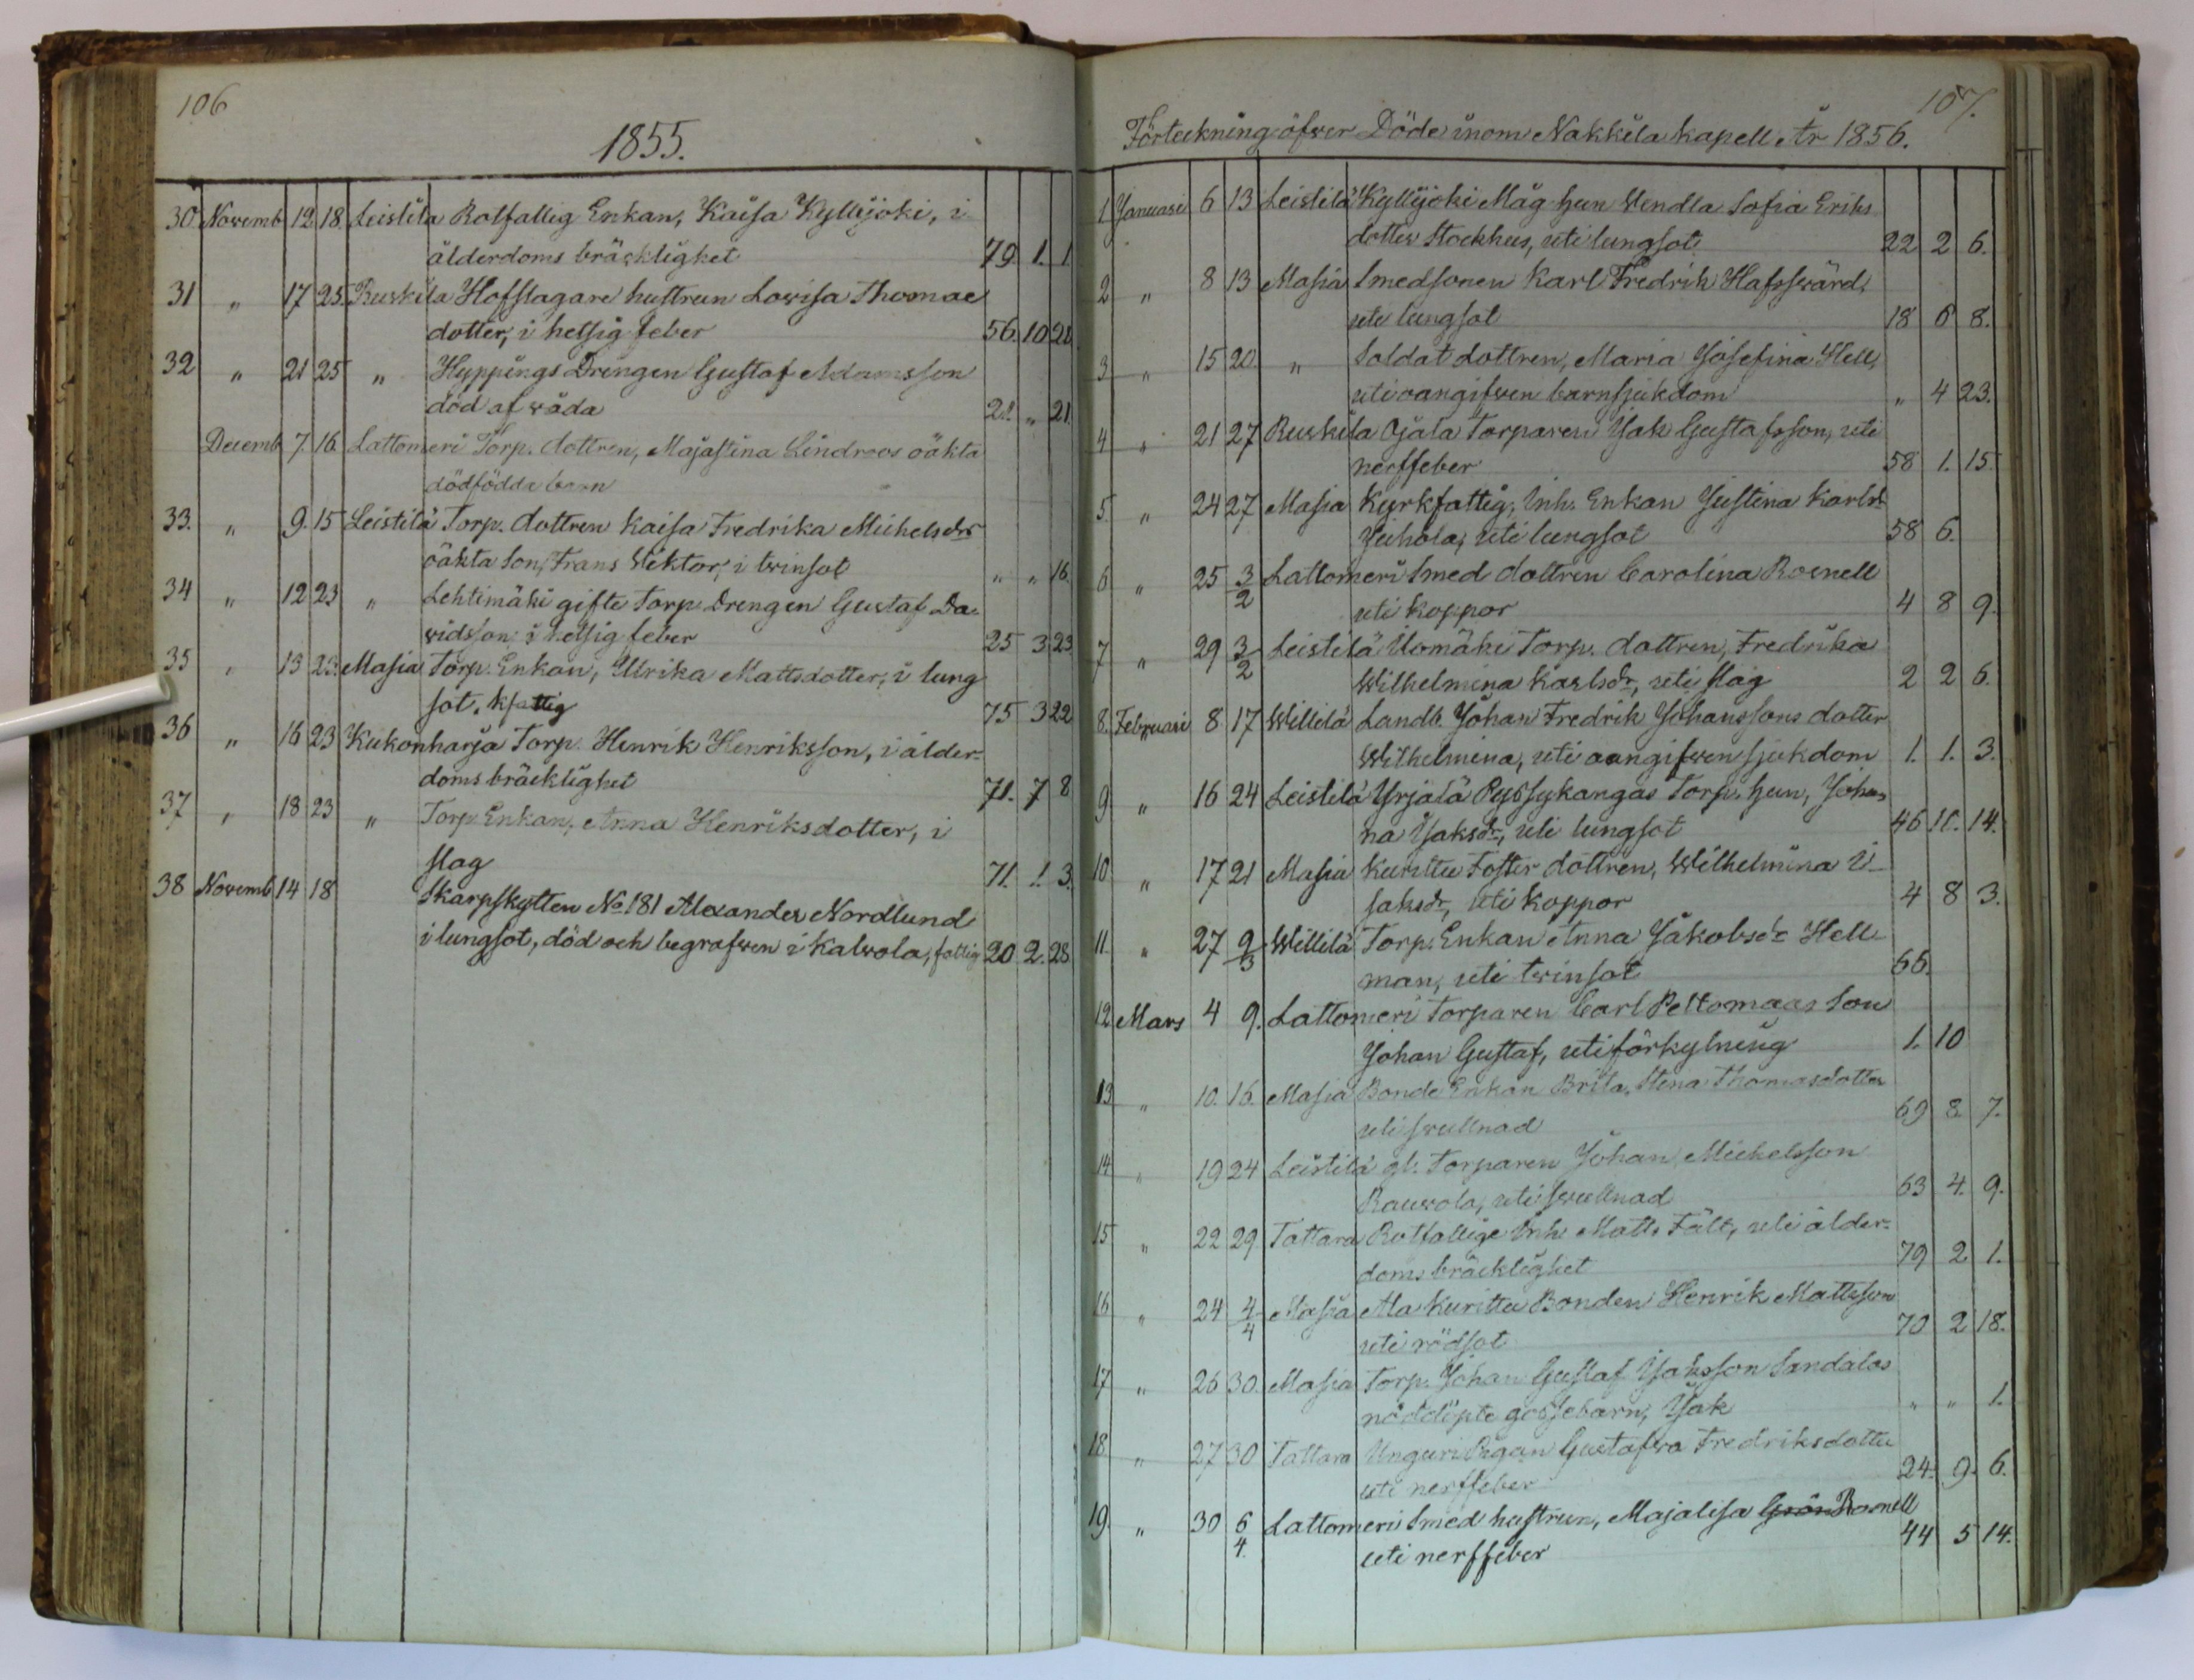 106
1855.
30 Novemb 12 18 Leistila Rotfattig Enkan, Kaisa Kyllijoki, i
ålderdoms bräcklighet 79. 1. 1
31 " 17 25 Ruskila Hofslagare hustrun Lovisa Thomae
dotter, i hetsig feber 56. 10 28
32 " 21 25 " Hyppings Drengen Gustaf Adamsson
död af våda 21. " 21.
Decemb 7. 16. Lattomeri Torp. dottren, Majastina Lindroos oäkta
dödfödda barn
33. " 9. 15 Leistilä Torp. dottren Kaisa Fredrika Michelsdr
oäkta Son, Frans Wiktor, i twinsot " " 16.
34 " 12 23 " Lehtimäki gifte Torp. Drengen Gustaf Da-
vidsson i hetsig feber 25 3 23
35 " 13 23. Masia Torp. Enkan, Ulrika Mattsdotter, i lung
sot. kfattig 75 3 22
36 " 16 23 Kukonharja Torp. Henrik Henriksson, i ålder-
doms bräcklighet 71. 7 8
37 " 18 23 " Torp. Enkan, Anna Henriksdotter, i
slag 71. 1. 3.
38 Novemb. 14 18 Skarpskytten No 181 Alexander Nordlund
i lungsot, död och begrafven i Kalvola, fattig 20 2. 28
107.
Förteckning öfver Döde inom Nakkila kapell År 1856.
1 Januari 6 13 Leistilä Kyllijoki Måg hun Wendla Sofia Eriks
dotter Stockhus, uti lungsot 22 2 6.
2 " 8 13 Masia Smedsonen Karl Fredrik Hafssvärd,
uti lungsot 18 6 8.
3 " 15 20 " Soldat dottren, Maria Josefina Hell,
uti oangifven barnsjukdom " 4 23.
4 " 21 27 Ruskila Ojala Torparen Isak Gustafsson, uti
nerffeber 58 1. 15.
5. " 24 27 Masia Kyrkfattig, Inh. Enkan Justina Karlsd
Juhola, uti lungsot 58 6.
6 " 25 3/2 Lattomeri Smed dottren Carolina Rosnell
uti koppor 4 8 9.
7 " 29 3/2 Leistilä Uomäki Torp. dottren, Fredrika
Wilhelmina Karlsdr, uti slag 2 2 6.
8. Februari 8 17 Willilä Landb. Johan Fredrik Johanssons dotter
Wilhelmina, uti oangifven sjukdom 1. 1. 3.
9 " 16 24 Leistilä Yrjälä Pyssykangas Torp. hun, Johan
na Isaksdr, uti lungsot 46 11. 14.
10 " 17 21 Masia Kurittu Foster dottren, Wilhelmina I-
saksdr, uti koppor 4 8 3.
11. " 27 9/3 Willilä Torp. Enkan Anna Jakobsdr Hell-
man, uti twinsot 66.
12 Mars 4 9. Lattomeri Torparen Carl Peltomaas Son
Johan Gustaf, uti förkylning 1. 10
13 " 10. 16. Masia Bonde Enkan Brita Stina Thomasdotter
uti svullnad 69 8. 7.
14 " 19 24 Leistilä gl. Torparen Johan Mickelsson
Rauvola, uti svullnad 63 4. 9.
15 " 22 29 Tattara Rotfattige Inh. Matts Fält, uti ålder-
doms bräcklighet 79 2 1.
16 " 24 4/4 Masia Ala Kurittu Bonden Henrik Mattsson
uti rödsot 70 2 18.
17 " 26 30. Masia Torp. Johan Gustaf Isaksson Sandalas
nöddöpte gossebarn, Isak " " 1.
18. " 27 30 Tattara Unguri Pigan Gustafva Fredriksdotter
uti nerffeber 24. 9. 6.
19. " 30 6/4. Lattomeri Smed hustrun, Majalisa Grön Rosnell
uti nerffeber 44 5 14.